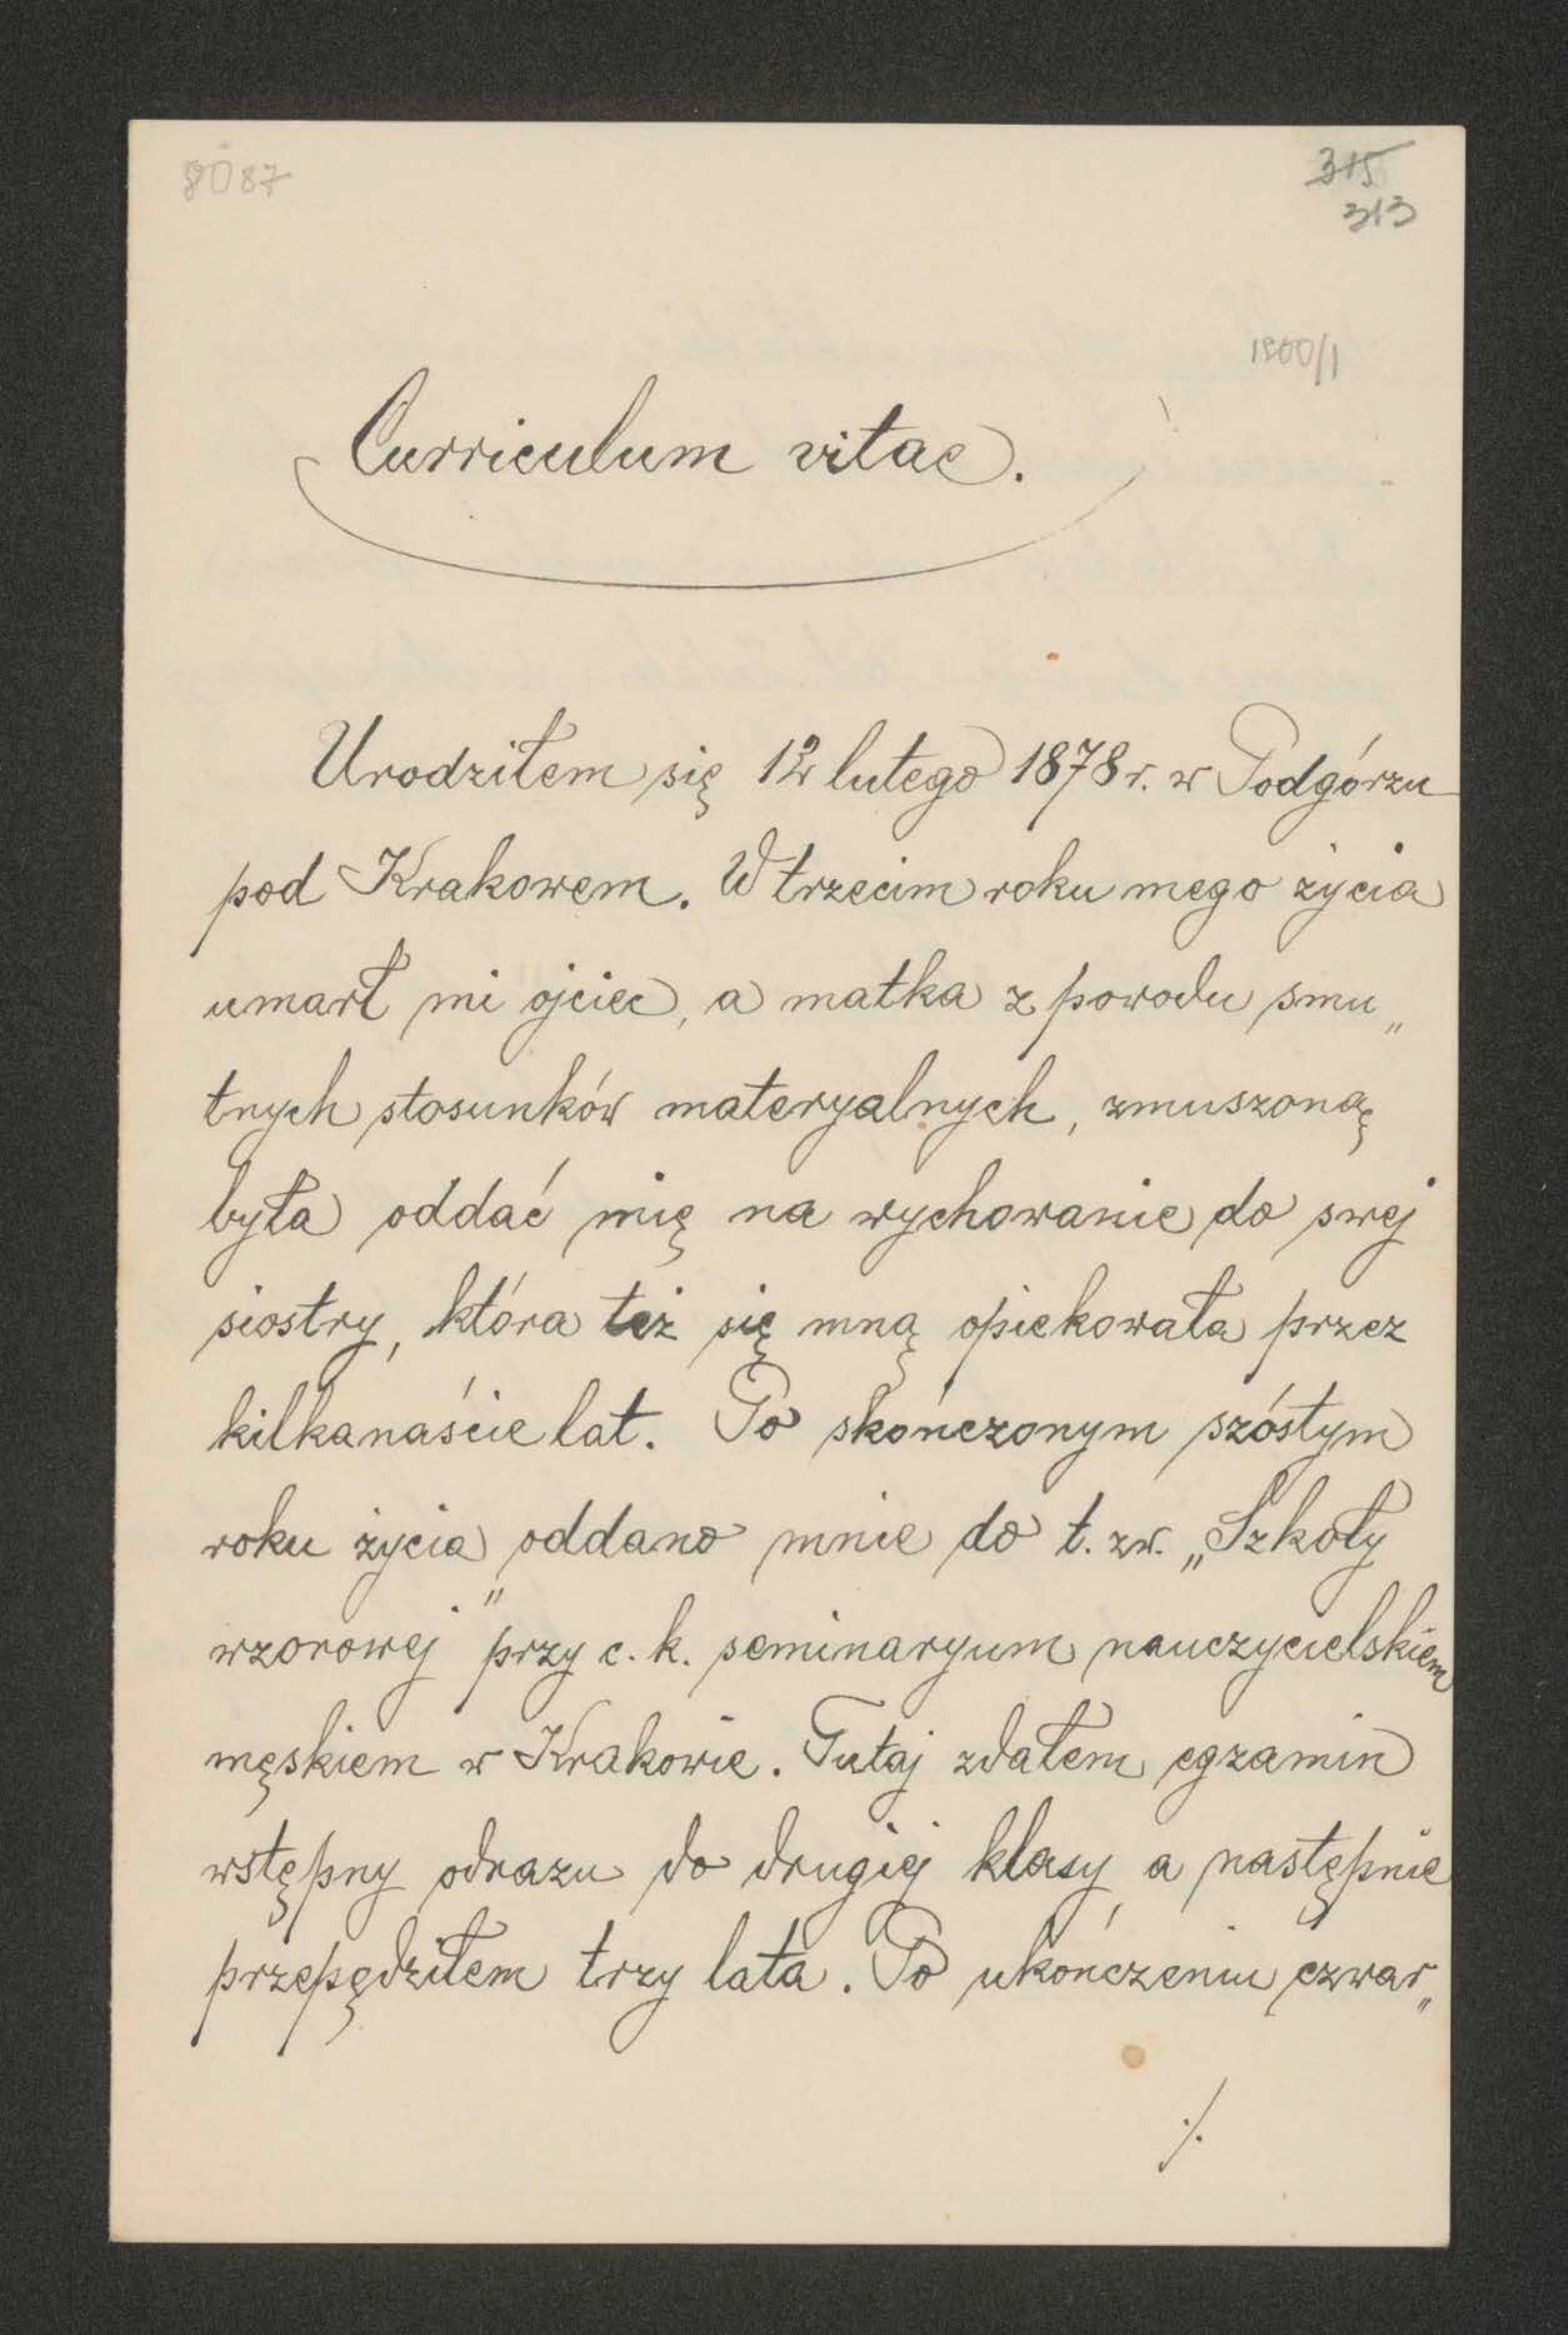 8087
315
313
1900/1
Curriculum vitae.
Urodziłem się 12 lutego 1878 r. w Podgórzu
pod Krakowem. W trzecim roku mego życia
umarł mi ojciec, a matka z powodu smu„
tnych stosunków materyalnych, zmuszoną
była oddać mię na wychowanie do swej
siostry, która też się mną opiekowała przez
kilkanaście lat. Po skończonym szóstym
roku życia oddano mnie do t. zw. „Szkoły
wzorowej" przy c. k. seminaryum nauczycielskiem
męskiem w Krakowie. Tutaj zdałem egzamin
wstępny odrazu do drugiej klasy, a następnie
przepędziłem trzy lata. Po ukończeniu czwar„
./.